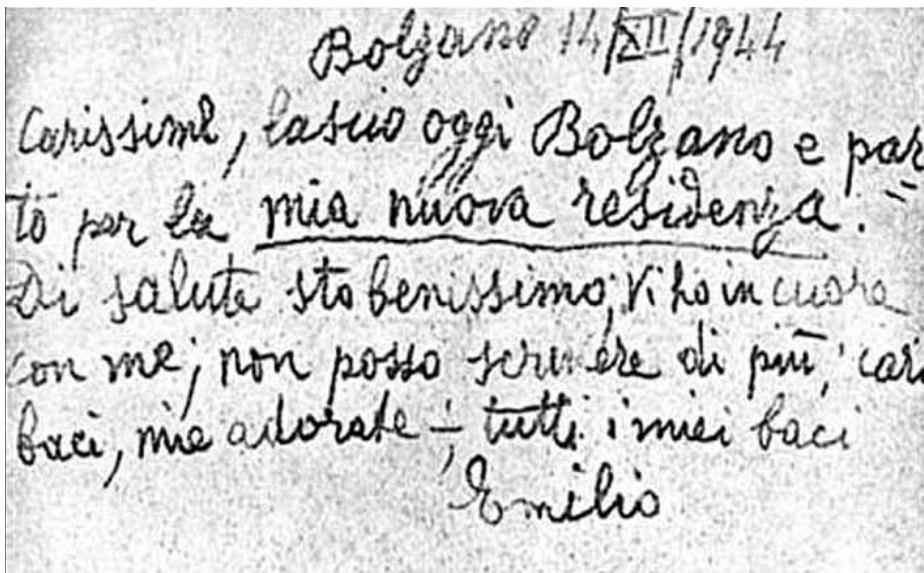 Bolzano 14/XII/1944
Carissime, lascio oggi Bolzano e par
to per la mia nuova residenza. =
Di salute sto benissimo; Vi ho in cuore
con me; non posso scrivere di più; cari
baci, mie adorate -; tutti i miei baci
Emilio